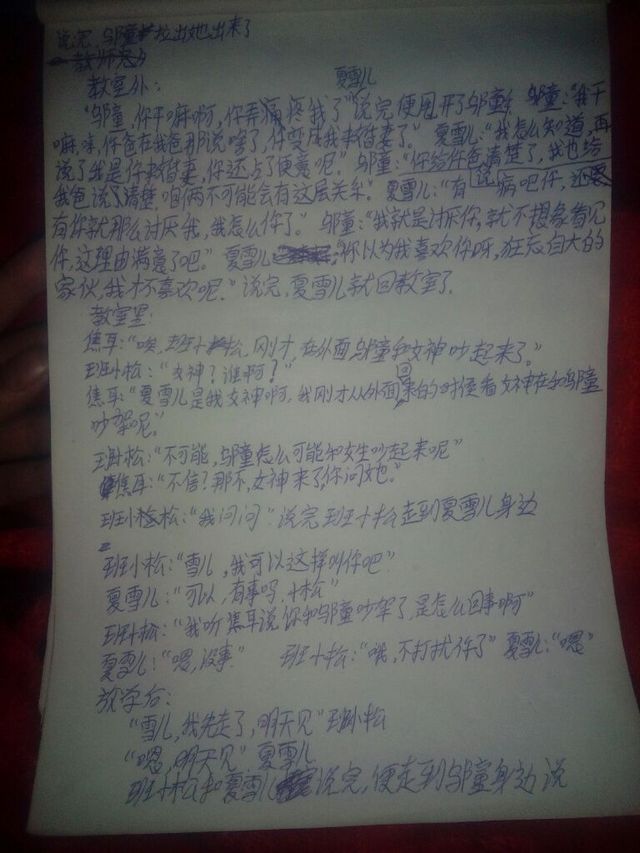 说完,邬童拉出她出来了
教室外:
夏雪儿
"邬童,你干嘛啊,你弄痛疼我了"说完便甩开了邬童 邬童:"我干
嘛,咪,你爸在我爸那说啥了,你变成我未婚妻了。"夏雪儿:"我怎么知道,再
说了我是你未婚妻,你还占了便宜呢。"邬童:"你给你爸清楚了,我也给
我爸说了清楚,咱俩不可能会有这层关系"。夏雪儿:"有病吧你,还
说
有你就那么讨厌我,我怎么你了。"邬童:"我就是讨厌你,就不想看见
你,这理由满意了吧。"夏雪儿:"你以为我喜欢你呀,狂妄自大的
家伙,我才不喜欢呢。"说完,夏雪儿就回教室了.
教室里:
焦耳:"唉,班小松,刚才,在外面,邬童和女神吵起来了。"
班小松:"女神?谁啊?"
焦耳:"夏雪儿是我女神啊,我刚才从外面回来的时候看女神在和邬童
吵架呢。"
班小松:"不可能,邬童怎么可能和女生吵起来呢"
焦耳:"不信?那不,女神来了,你问她。"
班小松:"我问问"说完班小松走到夏雪儿身边
班小松:"雪儿,我可以这样叫你吧"
夏雪儿:"可以,有事吗,小松"
班小松:"我听焦耳说你和邬童吵架了,是怎么回事啊"
夏雪儿:"嗯,没事." 班小松:"哦,不打扰你了"夏雪儿:"嗯"
放学后:
"雪儿,我先走了,明天见"班小松
"嗯,明天见"夏雪儿
班小松和夏雪儿说完,便走到邬童身边说